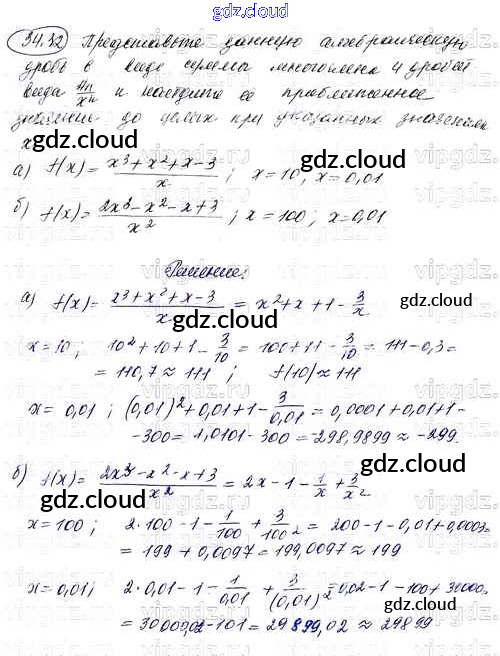 gdz.cloud
34.32 Представьте данную алгебраическую
дробь в виде суммы многочлена и дробей
вида an/x^n и найдите её приближенное
значение до целых при указанных значениях
x
gdz.cloud
а) f(x) = (x³+x²+x-3)/x ; x=10, x=0,01
б) f(x) = (2x³-x²-x+3)/x² ; x=100; x=0,01
gdz.cloud
Решение:
а) f(x) = (x³+x²+x-3)/x = x²+x+1-3/x
gdz.cloud
x=10; 10²+10+1-3/10 = 100+11-3/10 = 111-0,3=
= 110,7 ≈ 111 ; f(10) ≈ 111
x = 0,01 ; (0,01)²+0,01+1-3/0,01 = 0,0001+0,01+1-
-300 = 1,0101-300 = -298,9899 ≈ -299
gdz.cloud
б) f(x) = (2x³-x²-x+3)/x² = 2x-1-1/x+3/x²
gdz.cloud
x=100 ; 2·100-1-1/100+3/100² = 200-1-0,01+0,0003=
= 199+0,0097 = 199,0097 ≈ 199
x=0,01; 2·0,01-1-1/0,01+3/(0,01)² = 0,02-1-100+30000=
= 30000,02-101 = 29899,02 ≈ 29899
gdz.cloud